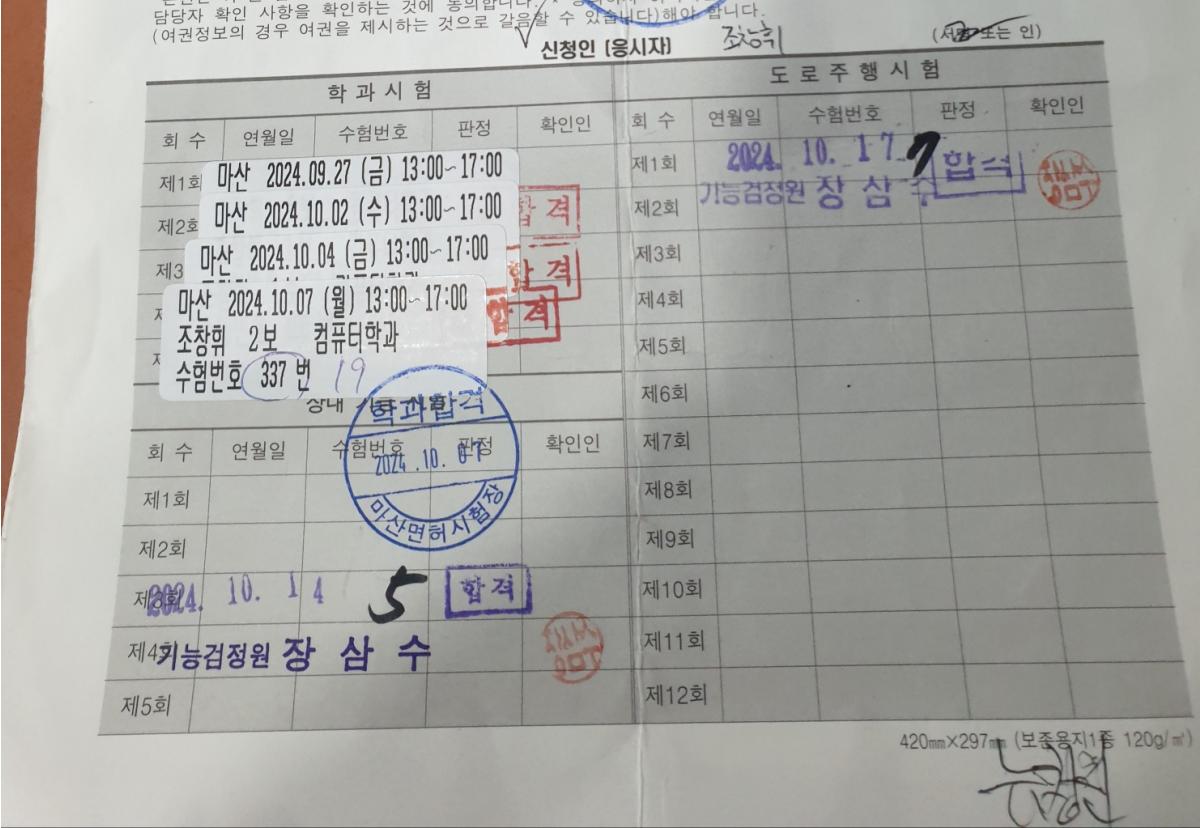 담당자 확인 사항을 확인하는 것에 동의합니다.
(여권정보의 경우 여권을 제시하는 것으로 갈음할 수 있습니다)해야 합니다.
신청인 (응시자) 조창휘 (서명 또는 인)
학 과 시 험
회 수 연월일 수험번호 판정 확인인
제1회
마산 2024.09.27 (금) 13:00~17:00
제2회
마산 2024.10.02 (수) 13:00~17:00
합격
제3
마산 2024.10.04 (금) 13:00~17:00
합격
마산 2024.10.07 (월) 13:00~17:00
합격
조창휘 2보 컴퓨터학과
수험번호 337 번 19
학과합격
2024.10.07
마산면허시험장
회 수 연월일 수험번호 판정 확인인
제1회
제2회
2024. 10. 14 5 합격
제4회 기능검정원 장삼수
제5회
도 로 주 행 시 험
회 수 연월일 수험번호 판정 확인인
제1회 2024. 10. 17 7 합격
제2회 기능검정원 장삼수
제3회
제4회
제5회
제6회
제7회
제8회
제9회
제10회
제11회
제12회
420㎜×297㎜ (보존용지1종 120g/㎡)